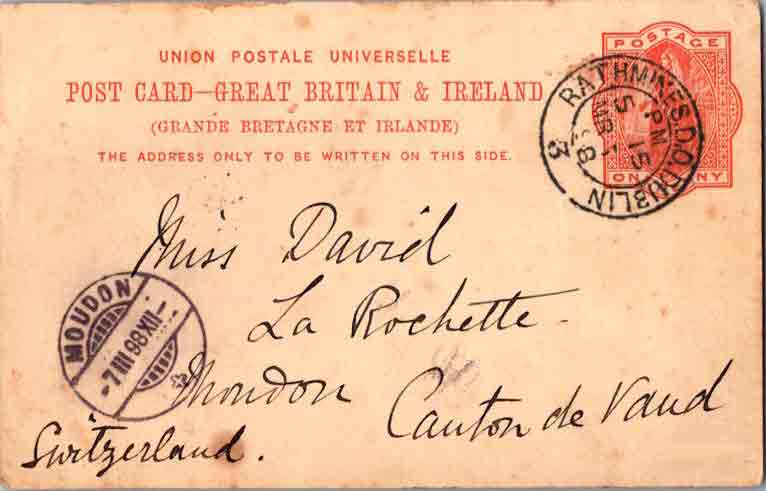 UNION POSTALE UNIVERSELLE
POST CARD—GREAT BRITAIN & IRELAND
(GRANDE BRETAGNE ET IRLANDE)
THE ADDRESS ONLY TO BE WRITTEN ON THIS SIDE.
POSTAGE
ONE PENNY
RATHMINES.D.O.DUBLIN
5 15 PM
98
3
Miss David
La Rochette
Moudon Canton de Vaud
Switzerland.
MOUDON
-7 III 98 XII-